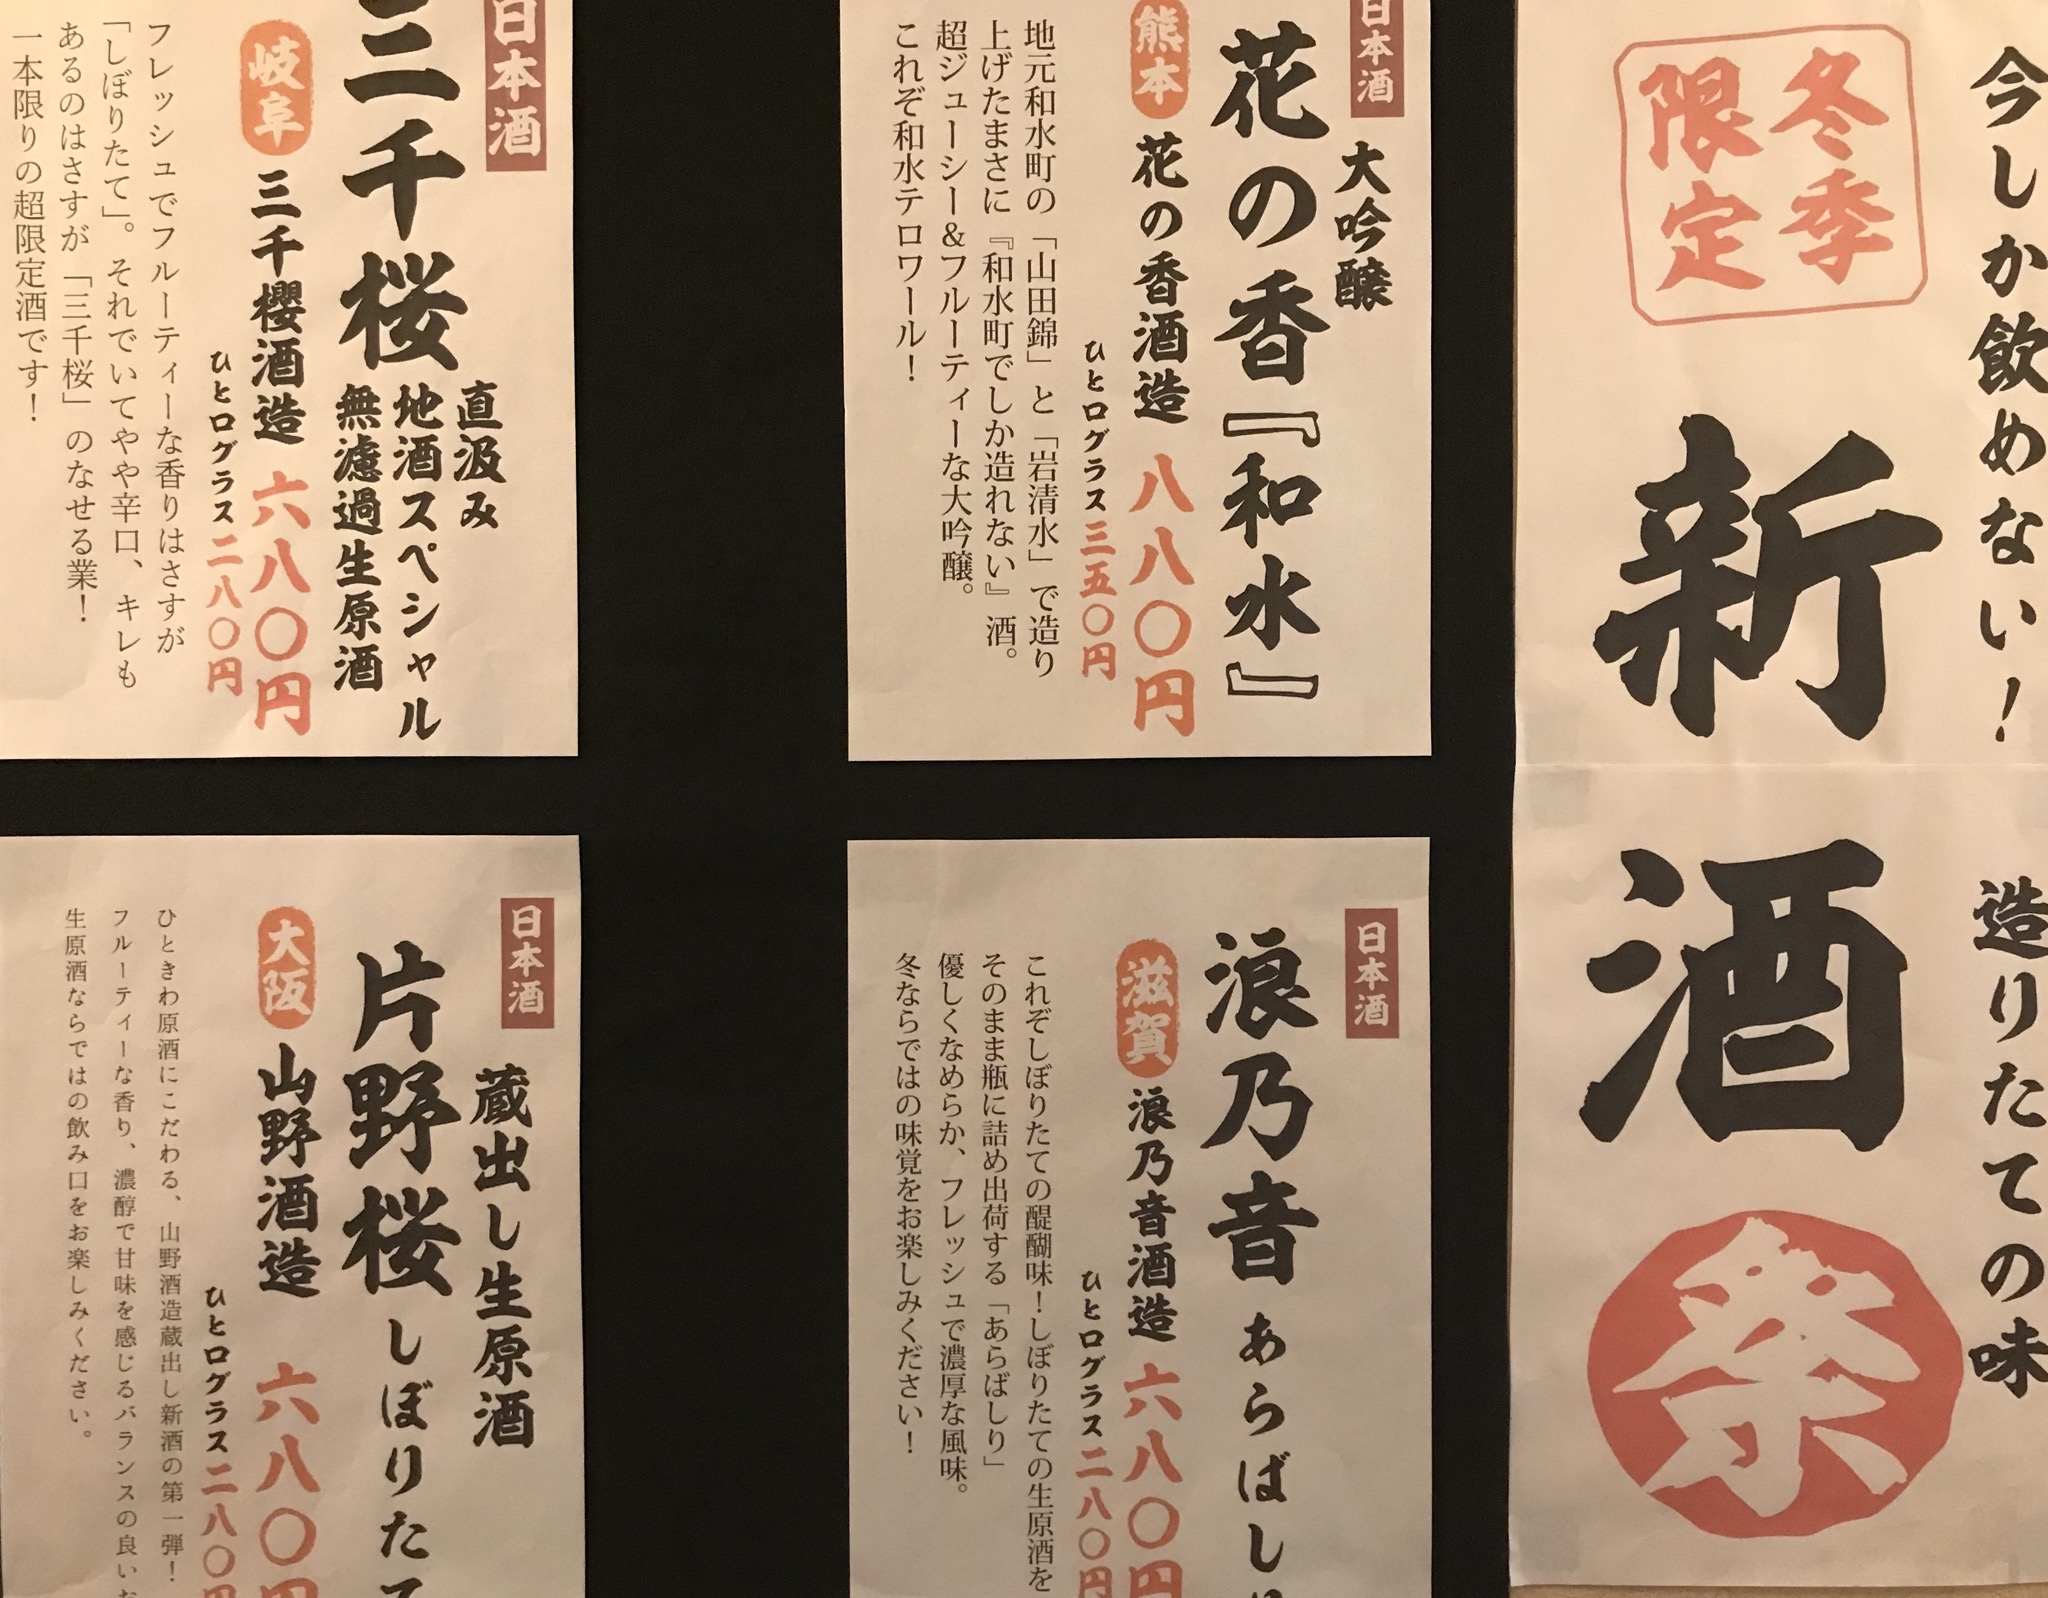 今しか飲めない！
造りたての味
冬季
限定
新酒祭
日本酒
大吟醸
花の香『和水』
熊本
花の香酒造
八八〇円
ひと口グラス三五〇円
地元和水町の「山田錦」と「岩清水」で造り
上げたまさに『和水町でしか造れない』酒。
超ジューシー&フルーティーな大吟醸。
これぞ和水テロワール！
日本酒
三千桜
直汲み
地酒スペシャル
無濾過生原酒
岐阜
三千櫻酒造
六八〇円
ひと口グラス二八〇円
フレッシュでフルーティーな香りはさすが
「しぼりたて」。それでいてやや辛口、キレも
あるのはさすが「三千桜」のなせる業！
一本限りの超限定酒です！
日本酒
浪乃音 あらばし
滋賀
浪乃音酒造
六八〇円
ひと口グラス二八〇円
これぞしぼりたての醍醐味！しぼりたての生原酒を
そのまま瓶に詰め出荷する「あらばしり」
優しくなめらか、フレッシュで濃厚な風味。
冬ならではの味覚をお楽しみください！
日本酒
蔵出し生原酒
片野桜 しぼりたて
大阪
山野酒造
六八〇円
ひと口グラス二八〇円
ひときわ原酒にこだわる、山野酒造蔵出し新酒の第一弾！
フルーティーな香り、濃醇で甘味を感じるバランスの良いお
生原酒ならではの飲み口をお楽しみください。